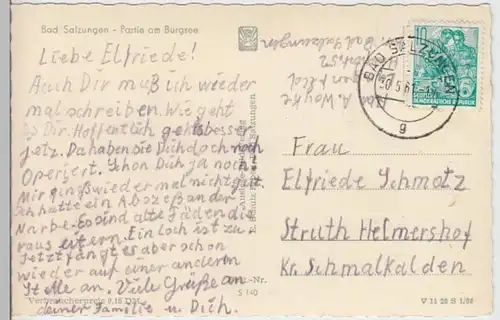 Bad Salzungen - Partie am Burgsee
Liebe Elfriede!
Auch Dir muß ich wieder
mal schreiben. Wie geht
es Dir. Hoffentlich gehts besser
jetz. Da haben sie Dich doch noch
Operjert. Schon Dich ja noch.
Mir gings wieder mal nicht gut.
Ich hatte ein Abszeß an der
Narbe. Es sind alte Fäden die
raus eitern. Ein loch ist zu
Jetzt fängt es aber schon
wieder auf einer anderen
Stelle an. Viele Grüße an
deiner Familie u. Dich.
Verbraucherpreis 0,15 DM
S 140
Bad Salzungen
BAD SALZUNGEN
g
DEUTSCHE
DEMOKRATISCHE REPUBLIK
Frau
Elfriede Schmotz
Struth Helmershof
Kr. Schmalkalden
V 11 28 S 1/56